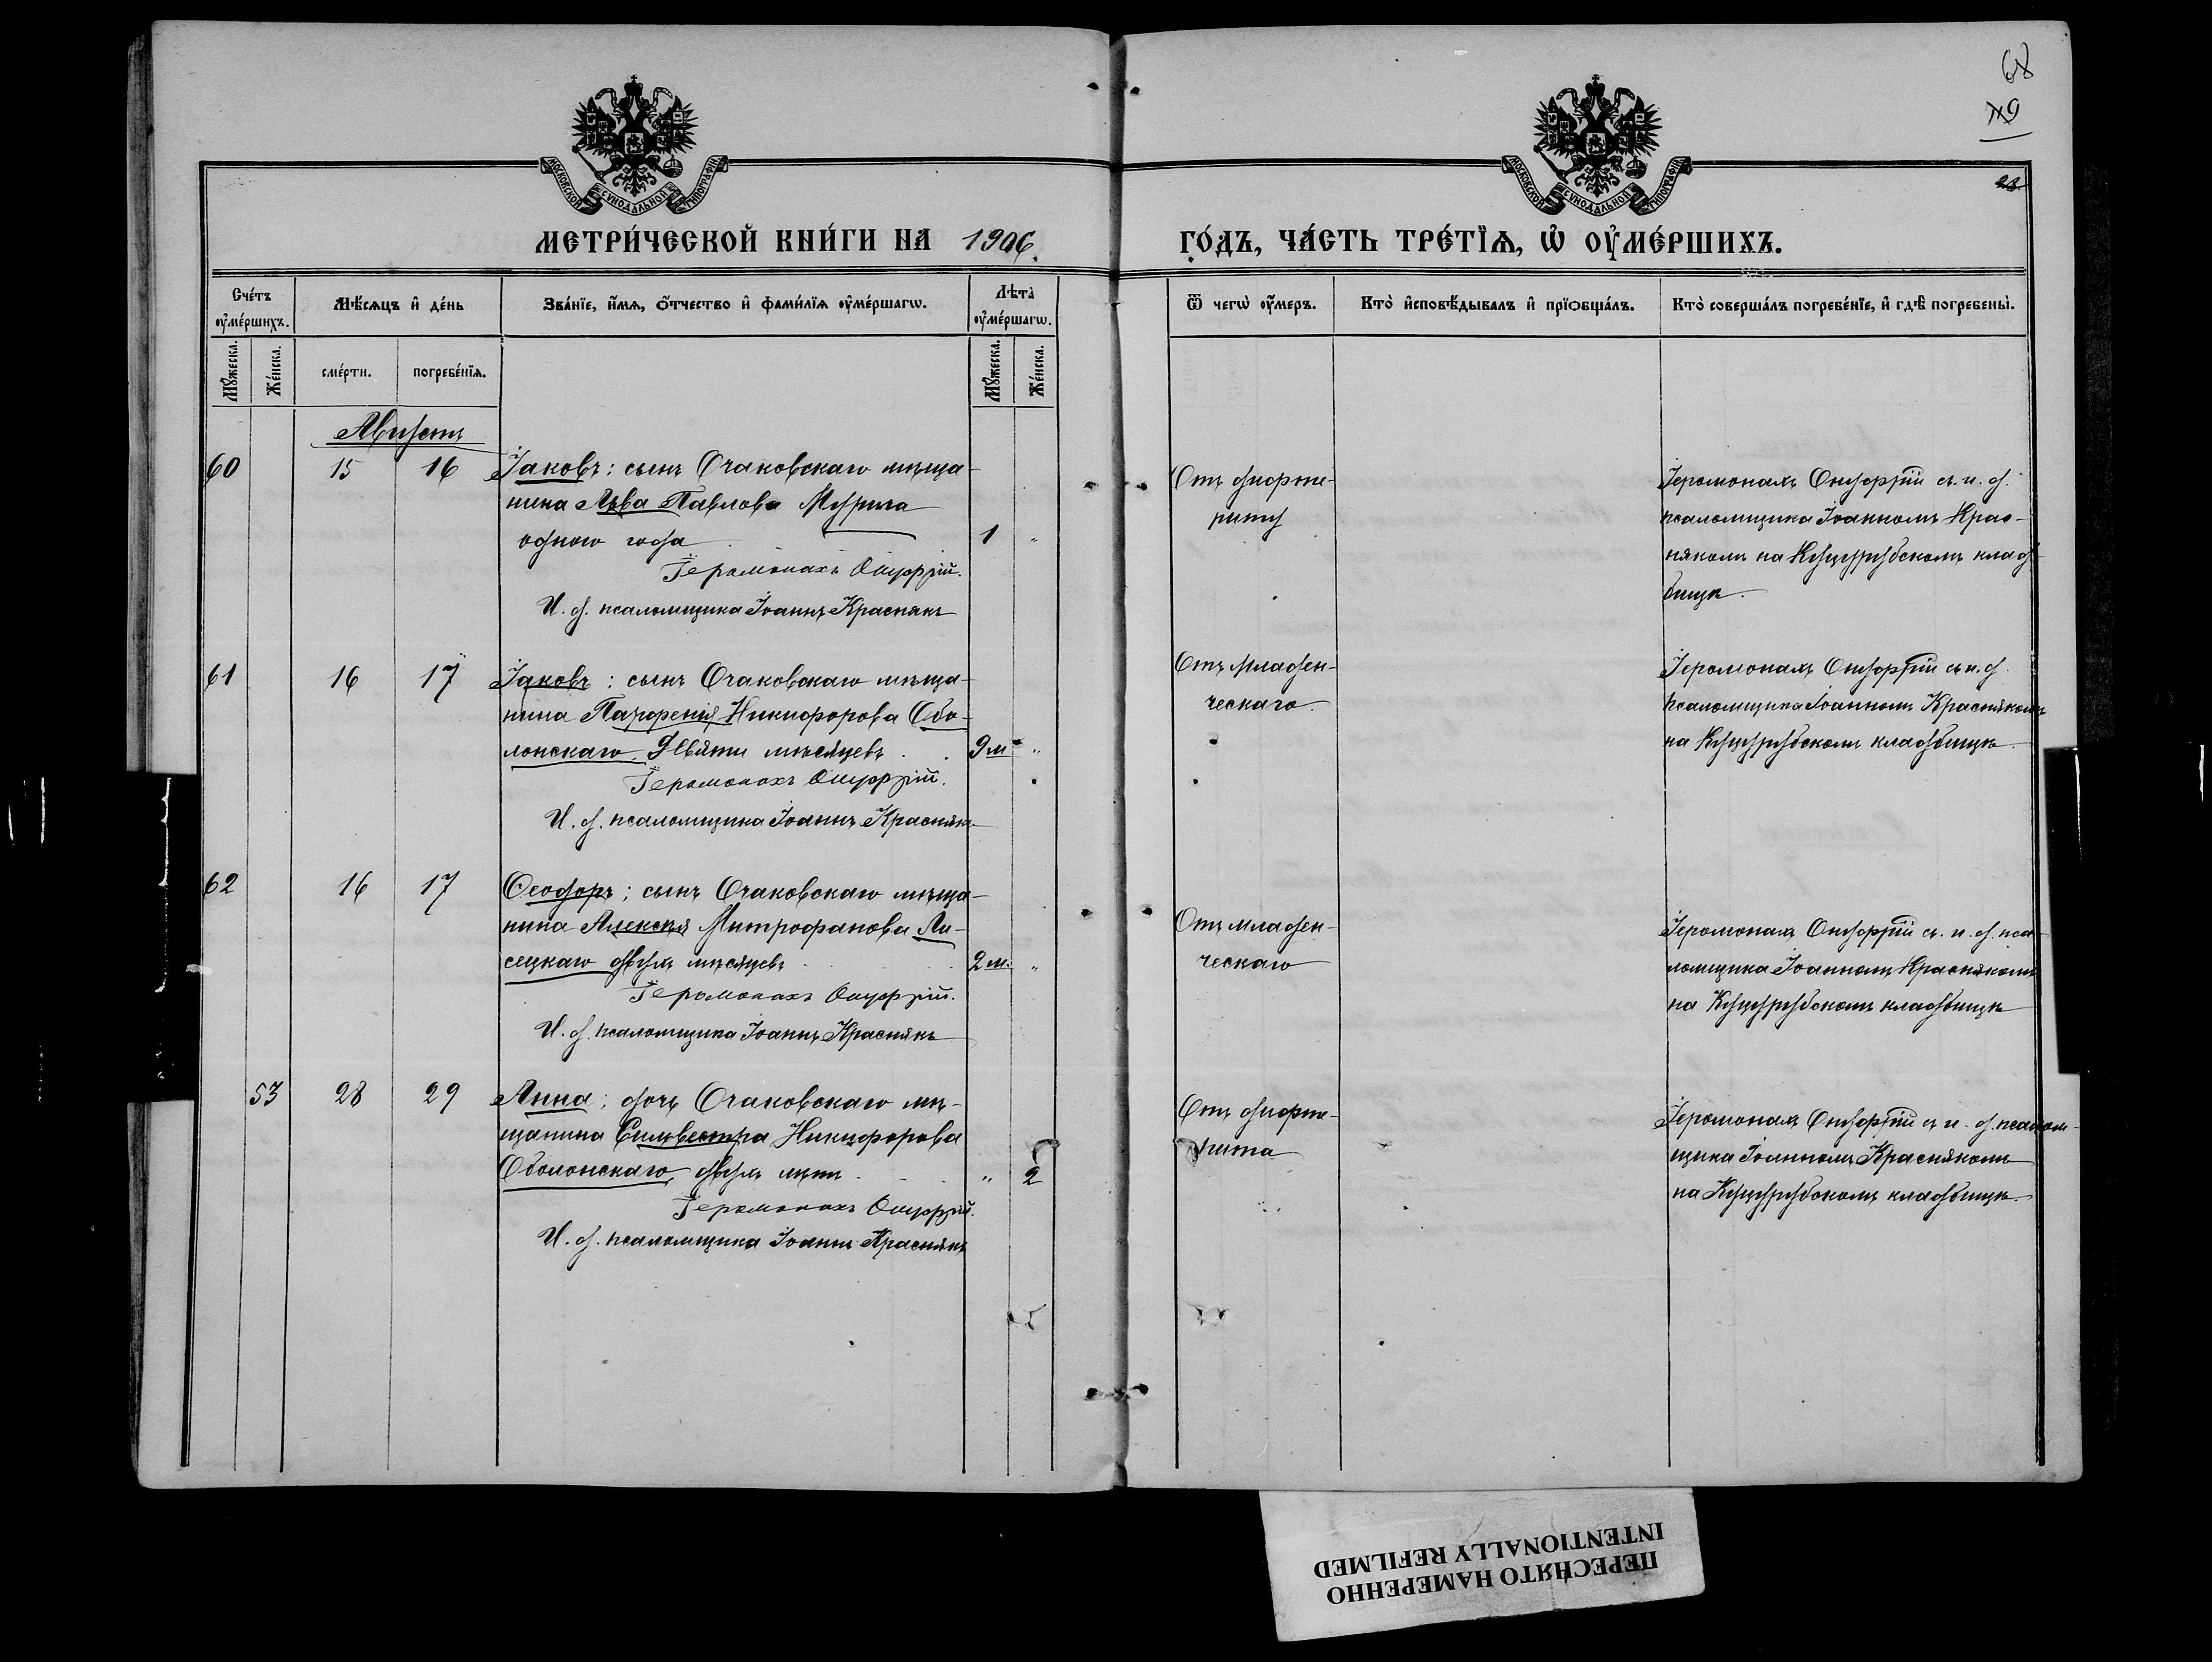 68
МОСКОВСКОЙ СѴНОДАЛЬНОЙ ТИПОГРАФІИ
МОСКОВСКОЙ СѴНОДАЛЬНОЙ ТИПОГРАФІИ
28
МЕТРИ́ЧЕСКОЙ КНИ́ГИ НА 1906.
ГО́ДЪ, ЧА́СТЬ ТРЕ́ТЇѦ, Ѽ ОУ҆МЕ́РШИХЪ.
Сче́тъ оу҆ме́ршихъ.
Мѣ́сѧцъ и҆ де́нь
Зва́нїе, и҆́мѧ, ѻ҆́тчество и҆ фами́лїѧ оу҆ме́ршагѡ.
Лѣ́та оу҆ме́ршагѡ.
Ѿ чегѡ̀ оу҆́меръ.
Кто̀ и҆сповѣ́дывалъ и҆ прїѡбща́лъ.
Кто̀ соверша́лъ погребе́нїе, и҆ гдѣ̀ погребены̀.
Мꙋ́жеска.
Же́нска.
сме́рти.
погребе́нїѧ.
Мꙋ́жеска.
Же́нска.
Августъ
60 15 16 Іаковъ: сынъ Очаковскаго мѣща-
нина Льва Павлова
одного года 1 "
Іеромонахъ Онуфрій.
И. д. псаломщика Іоаннъ Краснякъ
Отъ дифте-
риту
Іеромонахъ Онуфрій съ и. д.
псаломщика Іоанномъ Крас-
някомъ на Куцурубскомъ клад-
бищѣ.
61 16 17 Іаковъ: сынъ Очаковскаго мѣща-
нина Парфенія Никифорова Обо-
лонскаго. Девяти мѣсяцевъ 9 м "
Іеромонахъ Онуфрій.
И. д. псаломщика Іоаннъ Краснякъ
Отъ младен-
ческаго
Іеромонахъ Онуфрій съ и. д.
псаломщика Іоанномъ Краснякомъ
на Куцурубскомъ кладбищѣ
62 16 17 Ѳеодоръ; сынъ Очаковскаго мѣща-
нина Алексѣя Митрофанова Ли-
сецкаго двухъ мѣсяцевъ 2 м. "
Іеромонахъ Онуфрій.
И. д. псаломщика Іоаннъ Краснякъ
Отъ младен-
ческаго
Іеромонахъ Онуфрій съ. и. д. пса-
ломщика Іоанномъ Краснякомъ
на Куцурубскомъ кладбищѣ
53 28 29 Анна; дочь Очаковскаго мѣ-
щанина Сильвестра Никифорова
Оболонскаго двухъ лѣтъ " 2
Іеромонахъ Онуфрій.
И. д. псаломщика Іоаннъ Краснякъ
Отъ дифте-
рита
Іеромонахъ Онуфрій съ и. д. псалом-
щика Іоанномъ Краснякомъ
на Куцурубскомъ кладбищѣ.
ПЕРЕСНЯТО НАМЕРЕННО
INTENTIONALLY REFILMED